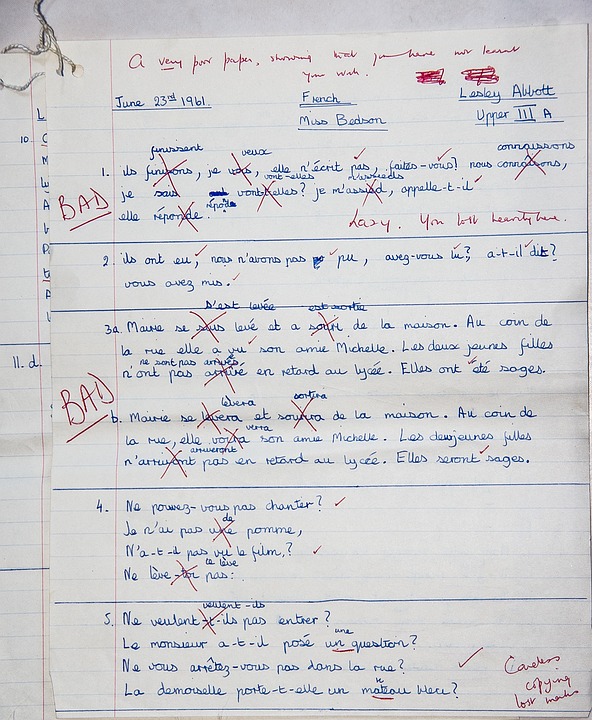 A very poor paper, showing that you have not learnt
your work.
June 23rd 1961.
French
Lesley Abbott
Miss Bedson
Upper III A
finissent veux connaissons
1. ils finissons, je vous, elle n'écrit pas, faites-vous? nous connaisons,
vont-elles m'assieds
je sais vont-elles? je m'assied, appelle-t-il
BAD
elle réponde.
répond
Lazy. You lost heavily here.
2. ils ont eu, nous n'avons pas pu, avez-vous lu? a-t-il dit?
vous avez mis.
s'est levée est sortie
3a. Marie se suis levé et a souri de la maison. Au coin de
la rue elle a vu son amie Michelle. Les deux jeunes filles
ne sont pas arrivées
n'ont pas arrivé en retard au lycée. Elles ont été sages.
BAD
lèvera sortira
b. Mairie se levera et soutira de la maison. Au coin de
verra
la rue, elle voira son amie Michelle. Les deuxjeunes filles
arriveront
n'arriyont pas en retard au lycée. Elles seront sages.
4. Ne pouvez-vous pas chanter?
de
Je n'ai pas une pomme,
N'a-t-il pas vu le film,?
te lève
Ne lève-toi pas:
veulent-ils
5. Ne veulent-t-ils pas entrer?
une
Le monsieur a-t-il posé un question?
Ne vous arrêtez-vous pas dans la rue?
La demoiselle porte-t-elle un mateau bleu?
Careless
copying
lost marks
L
10.
11. d.